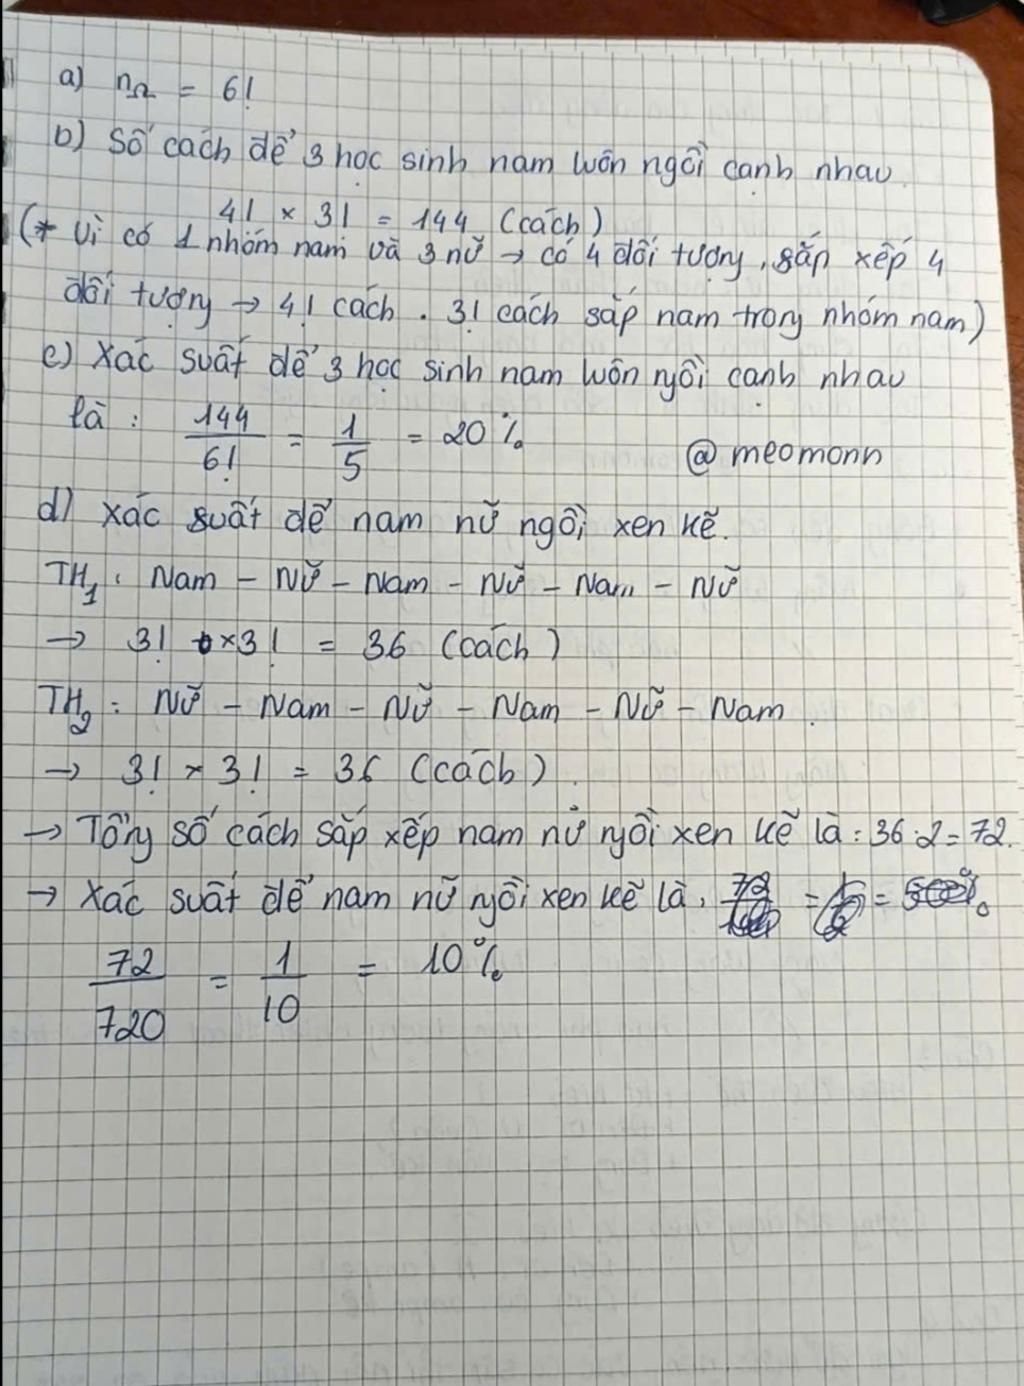 a) nΩ = 6!
b) Số cách để 3 học sinh nam luôn ngồi cạnh nhau.
4! × 3! = 144 (cách)
(* Vì có 1 nhóm nam và 3 nữ → có 4 đối tượng, sắp xếp 4
đối tượng → 4! cách . 3! cách sắp nam trong nhóm nam)
c) Xác suất để 3 học sinh nam luôn ngồi cạnh nhau
là : 144/6! = 1/5 = 20%
@meomonn
d) Xác suất để nam nữ ngồi xen kẽ.
TH1 : Nam - Nữ - Nam - Nữ - Nam - Nữ
→ 3! × 3! = 36 (cách)
TH2 : Nữ - Nam - Nữ - Nam - Nữ - Nam.
→ 3! × 3! = 36 (cách).
→ Tổng số cách sắp xếp nam nữ ngồi xen kẽ là : 36.2 = 72.
→ Xác suất để nam nữ ngồi xen kẽ là.
72/720 = 1/10 = 10%